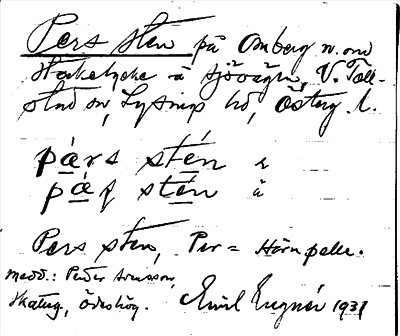 Pers sten på Omberg n. om
Storkelycke å sjövägen, V. Toll-
stad sn, Lysings hd, Österg. l.
pàrs stén
pàʃ stén
Pers sten, Per = Hörnpelle.
Medd.: Peder Aronsson,
Ödeshög. Emil Eugnér 1931